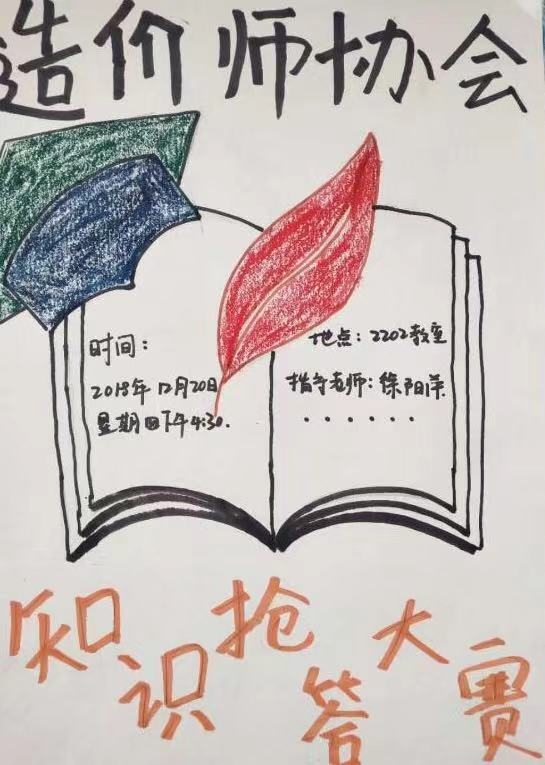 造价师协会
时间：
2018年12月20日
星期四下午4:30.
地点：2202教室
指导老师：徐阳萍
......
知识抢答大赛